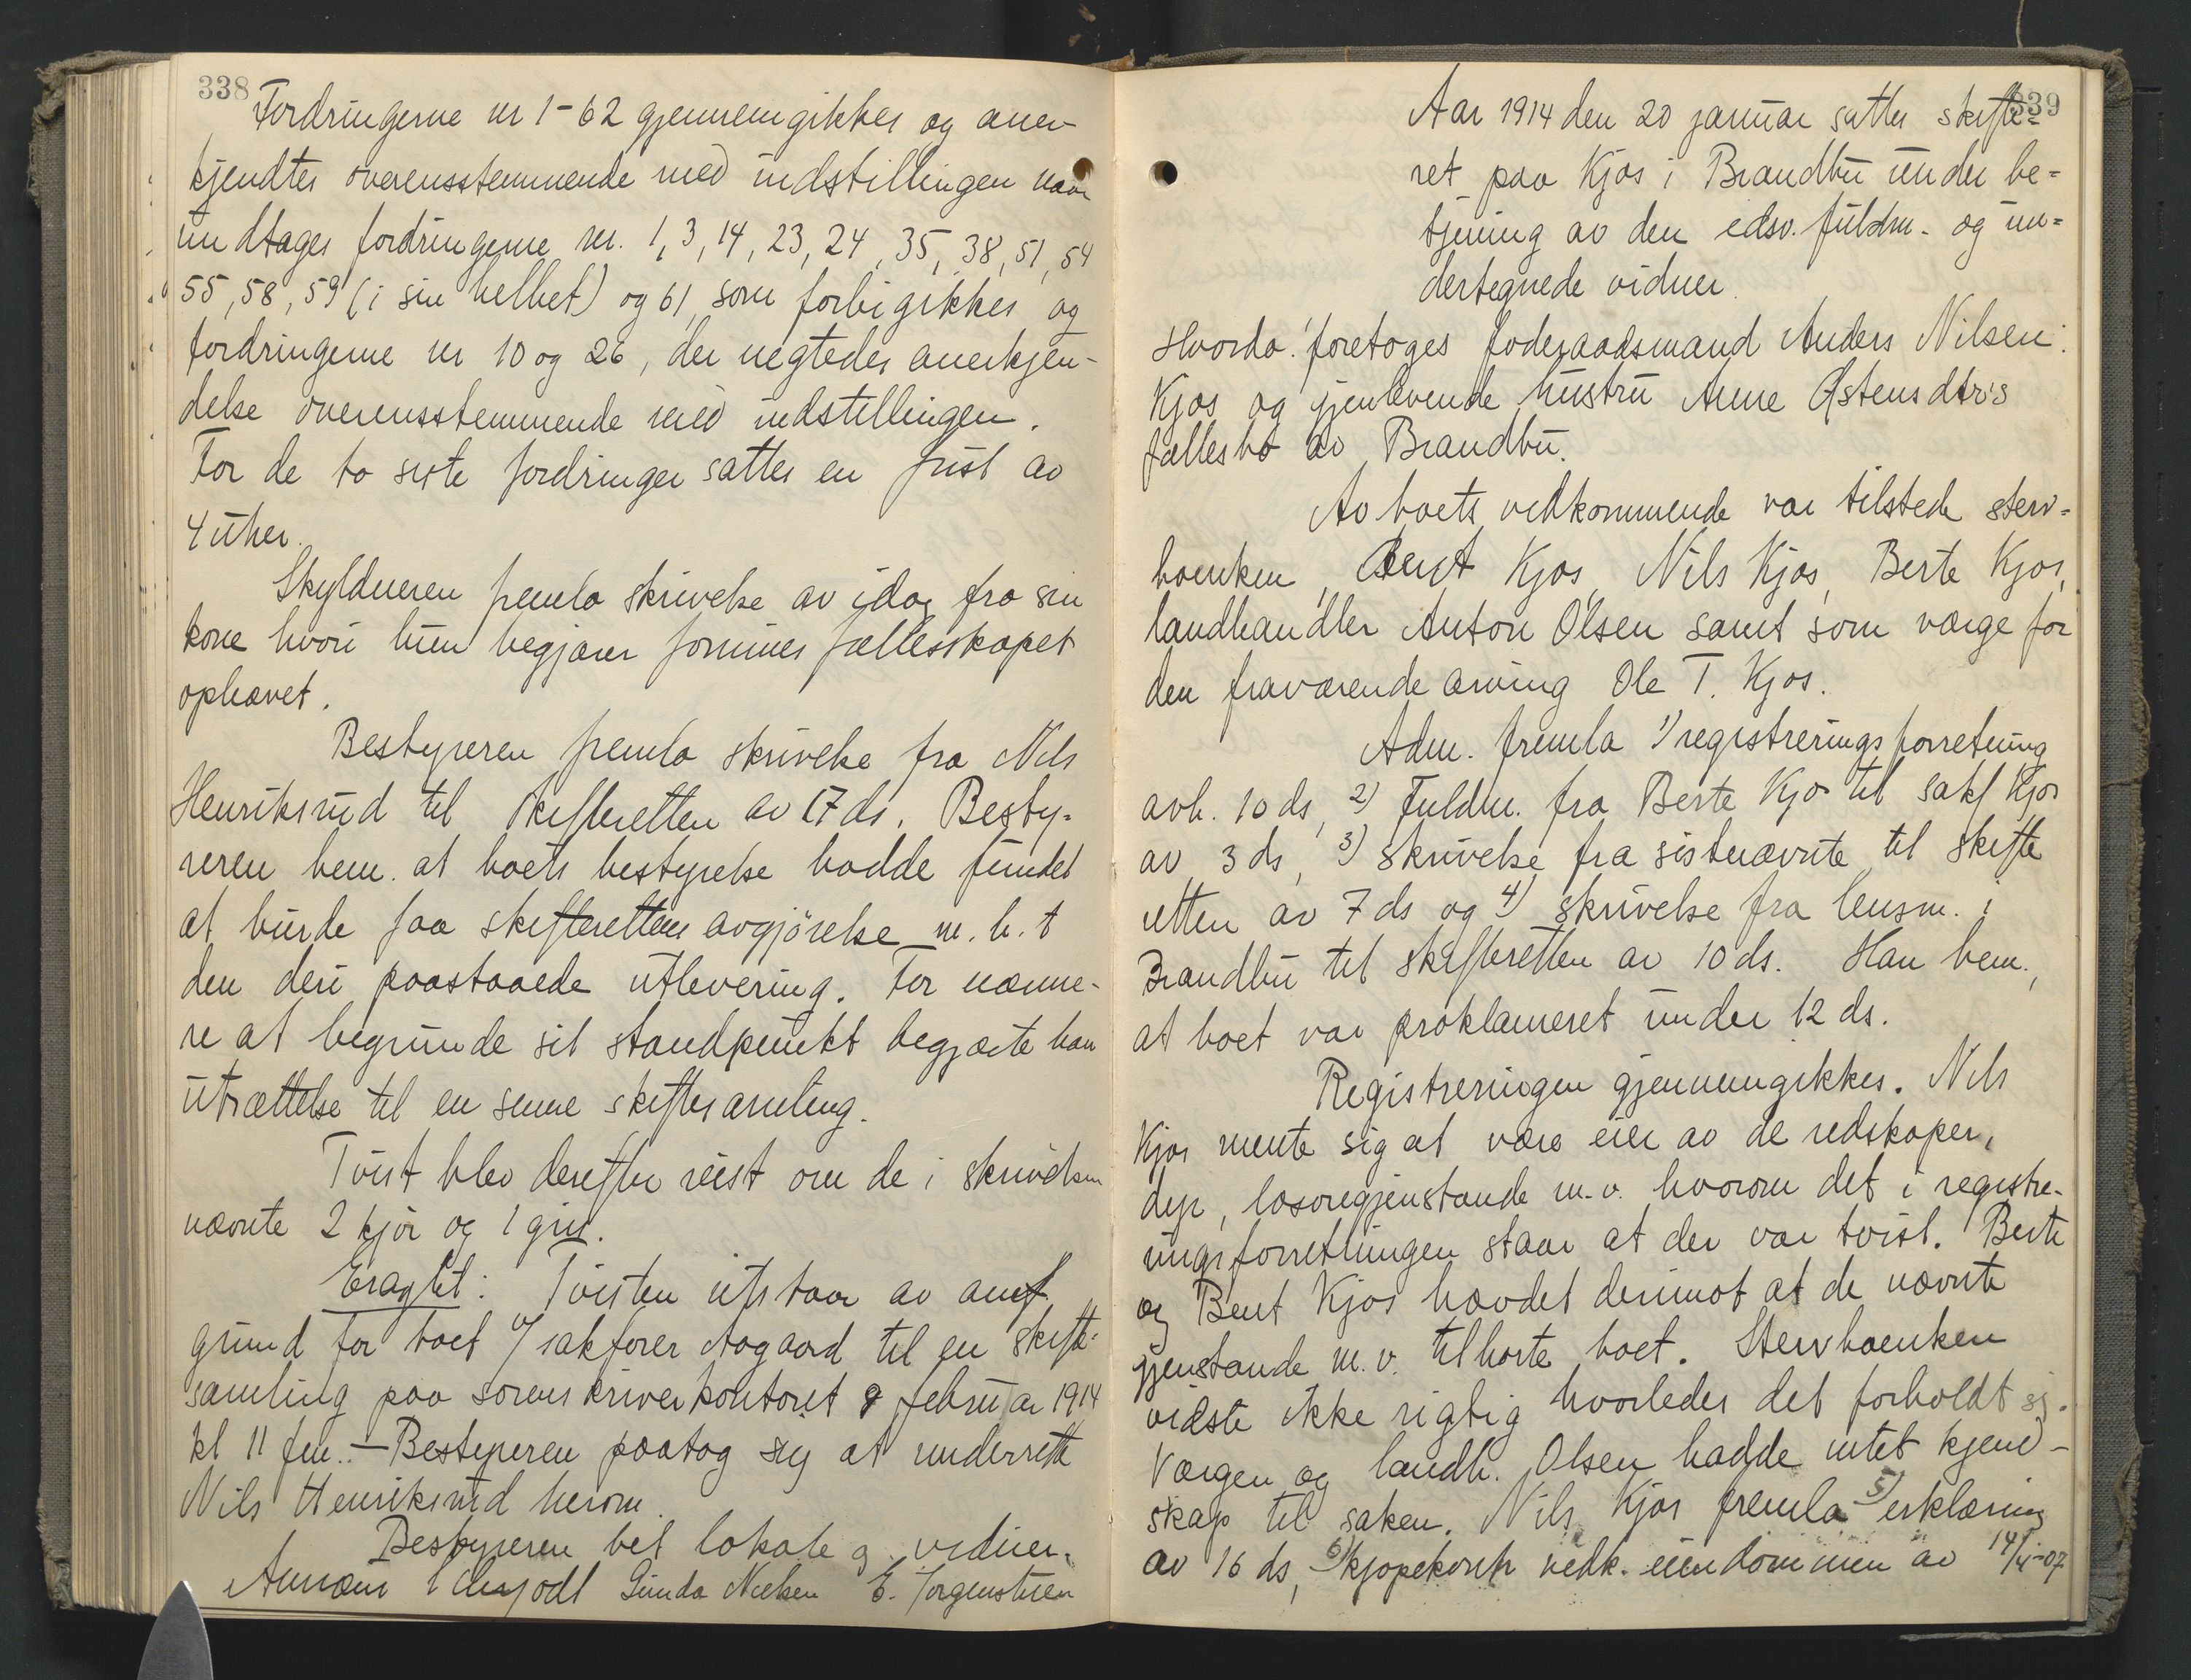 338
Fordringerne nr 1-62 gjennemgikkes og aner-
kjendtes overensstemmende med indstillingen naar
undtages fordringerne nr. 1, 3, 14, 23, 24, 35, 38, 51, 54
55, 58, 59 (i sin helhet) og 61, som forbigikkes og
fordringerne nr 10 og 26, der negtedes anerkjen-
delse overensstemmende med indstillingen.
For de to siste fordringer sattes en frist av
4 uker.
Skyldneren fremla skrivelse av idag fra sin
kone hvori hun begjærer formuesfællesskapet
ophævet.
Bestyreren fremla skrivelse fra Nils
Henriksrud til skifteretten av 17 ds. Besty-
reren bem. at boets bestyrelse hadde fundet
at burde faa skifterettens avgjörelse m. h. t
den deri paastaaede utlevering. For nærme-
re at begrunde sit standpunkt begjærte han
utsættelse til en senere skiftesamling.
Tvist blev derefter reist om de i skrivelsen
nævnte 2 kjör og 1 gris.
Eragtet: Tvisten utstaar av anf.
grund for boet v/ sakfører Aagaard til en skifte-
samling paa sorenskriverkontoret 9 februar 1914
kl 11 fm. - Bestyreren paatog sig at underrette
Nils Henriksrud herom.
Bestyreren bet lokale og vidner.
Gunda Nielsen E. Jørgensen
339
Aar 1914 den 20 januar sattes skifte=
ret paa Kjos i Brandbu under be=
tjening av den edsv. fuldm. og un=
dertegnede vidner.
Hvorda: foretoges føderaadsmand Anders Nilsen
Kjos og gjenlevende hustru Anne Østensdtr's
fællesbo av Brandbu.
Av boets vedkommende var tilstede sterv=
boenken, Bent Kjos, Nils Kjos, Berte Kjos,
landhandler Anton Olsen samt som værge for
den fraværende arving Ole T. Kjos.
Adm. fremla 1) registreringsforretning
avh. 10 ds, 2) Fuldm. fra Berte Kjos til sakf Kjos
av 3 ds, 3) skrivelse fra sistnævnte til skifte
retten av 7 ds og 4) skrivelse fra lensm. i
Brandbu til skifteretten av 10 ds. Han bem.,
at boet var proklameret under 12 ds.
Registreringen gjennemgikkes. Nils
Kjos mente sig at være eier av de redskaper,
dyr, løsøregjenstande m.v. hvorom det i registre-
ringsforretningen staar at der var tvist. Berte
og Bent Kjos hævdet derimot at de nævnte
gjenstande m.v. tilhørte boet. Stervboenken
vidste ikke rigtig hvorledes det forholdt sig.
Værgen og landh. Olsen hadde intet kjend-
skap til saken. Nils Kjos fremla 5) erklæring
av 16 ds, 6) kjøpekontr vedk. eiendommen av 14/4-07